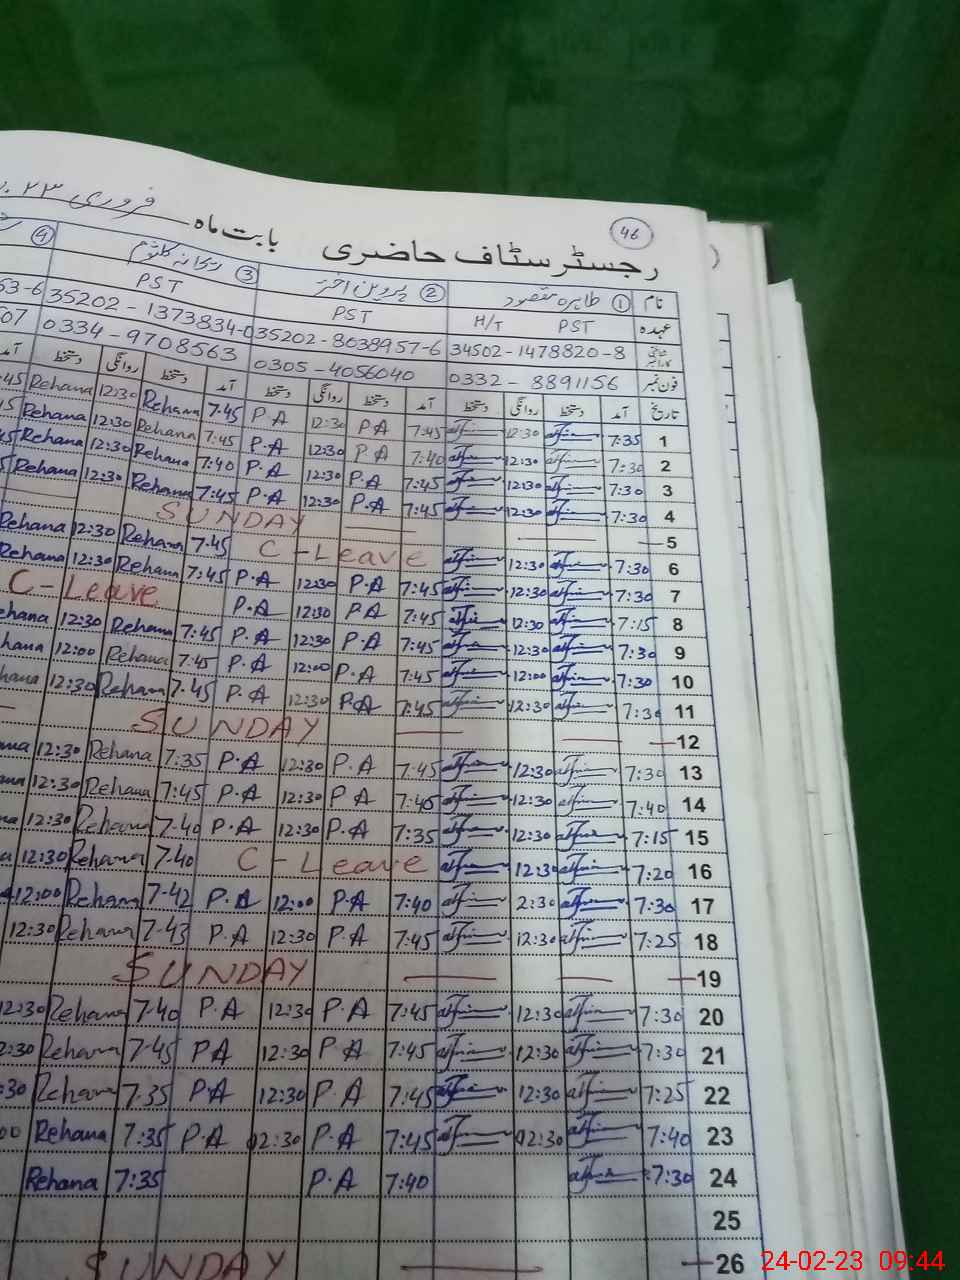 46
رجسٹر سٹاف حاضری بابت ماہ فروری ۲۰۲۳
نام ① طاہرہ مقصود ② پروین اختر ③ ریحانہ کلثوم ④
عہدہ PST H/T PST PST
34502-1478820-8 35202-8038957-6 35202-1373834-0 63-6
فون نمبر 0332-8891156 0305-4056040 0334-9708563 507
تاریخ آمد دستخط روانگی دستخط آمد دستخط روانگی دستخط آمد دستخط روانگی دستخط آمد
1 7:35 12:30 7:45 P.A 12:30 P.A 7:45 Rehana 12:30 Rehana :45
2 7:30 12:30 7:40 P.A 12:30 P.A 7:45 Rehana 12:30 Rehana
3 7:30 12:30 7:45 P.A 12:30 P.A 7:40 Rehana 12:30 Rehana
4 7:30 12:30 7:45 P.A 12:30 P.A 7:45 Rehana 12:30 Rehana
5 SUNDAY
6 7:30 12:30 C-Leave 7:45 Rehana 12:30 Rehana
7 7:30 12:30 7:45 P.A 12:30 P.A 7:45 Rehana 12:30 Rehana
8 7:15 12:30 7:45 P.A 12:30 P.A C-Leave
9 7:30 12:30 7:45 P.A 12:30 P.A 7:45 Rehana 12:30 ehana
10 7:30 12:00 7:45 P.A 12:00 P.A 7:45 Rehana 12:00 hana
11 7:30 12:30 7:45 P.A 12:30 P.A 7:45 Rehana 12:30 hana
12 SUNDAY
13 7:30 12:30 7:45 P.A 12:30 P.A 7:35 Rehana 12:30 ana
14 7:40 12:30 7:45 P.A 12:30 P.A 7:45 Rehana 12:30 ana
15 7:15 12:30 7:35 P.A 12:30 P.A 7-40 Rehana 12:30 na
16 7:20 12:30 C-Leave 7-40 Rehana 12:30 a
17 7:30 2:30 7:40 P.A 12:00 P.A 7-42 Rehana 12:00
18 7:25 12:30 7:45 P.A 12:30 P.A 7-43 Rehana 12:30
19 SUNDAY
20 7:30 12:30 7:45 P.A 12:30 P.A 7-40 Rehana 12:30
21 7:30 12:30 7:45 P.A 12:30 PA 7-45 Rehana 2:30
22 7:25 12:30 7:45 P.A 12:30 P.A 7:35 Rehana :30
23 7:40 12:30 7:45 P.A 12:30 P.A 7:35 Rehana 00
24 7:30 7:40 P.A 7:35 Rehana
25
26 SUNDAY
24-02-23 09:44